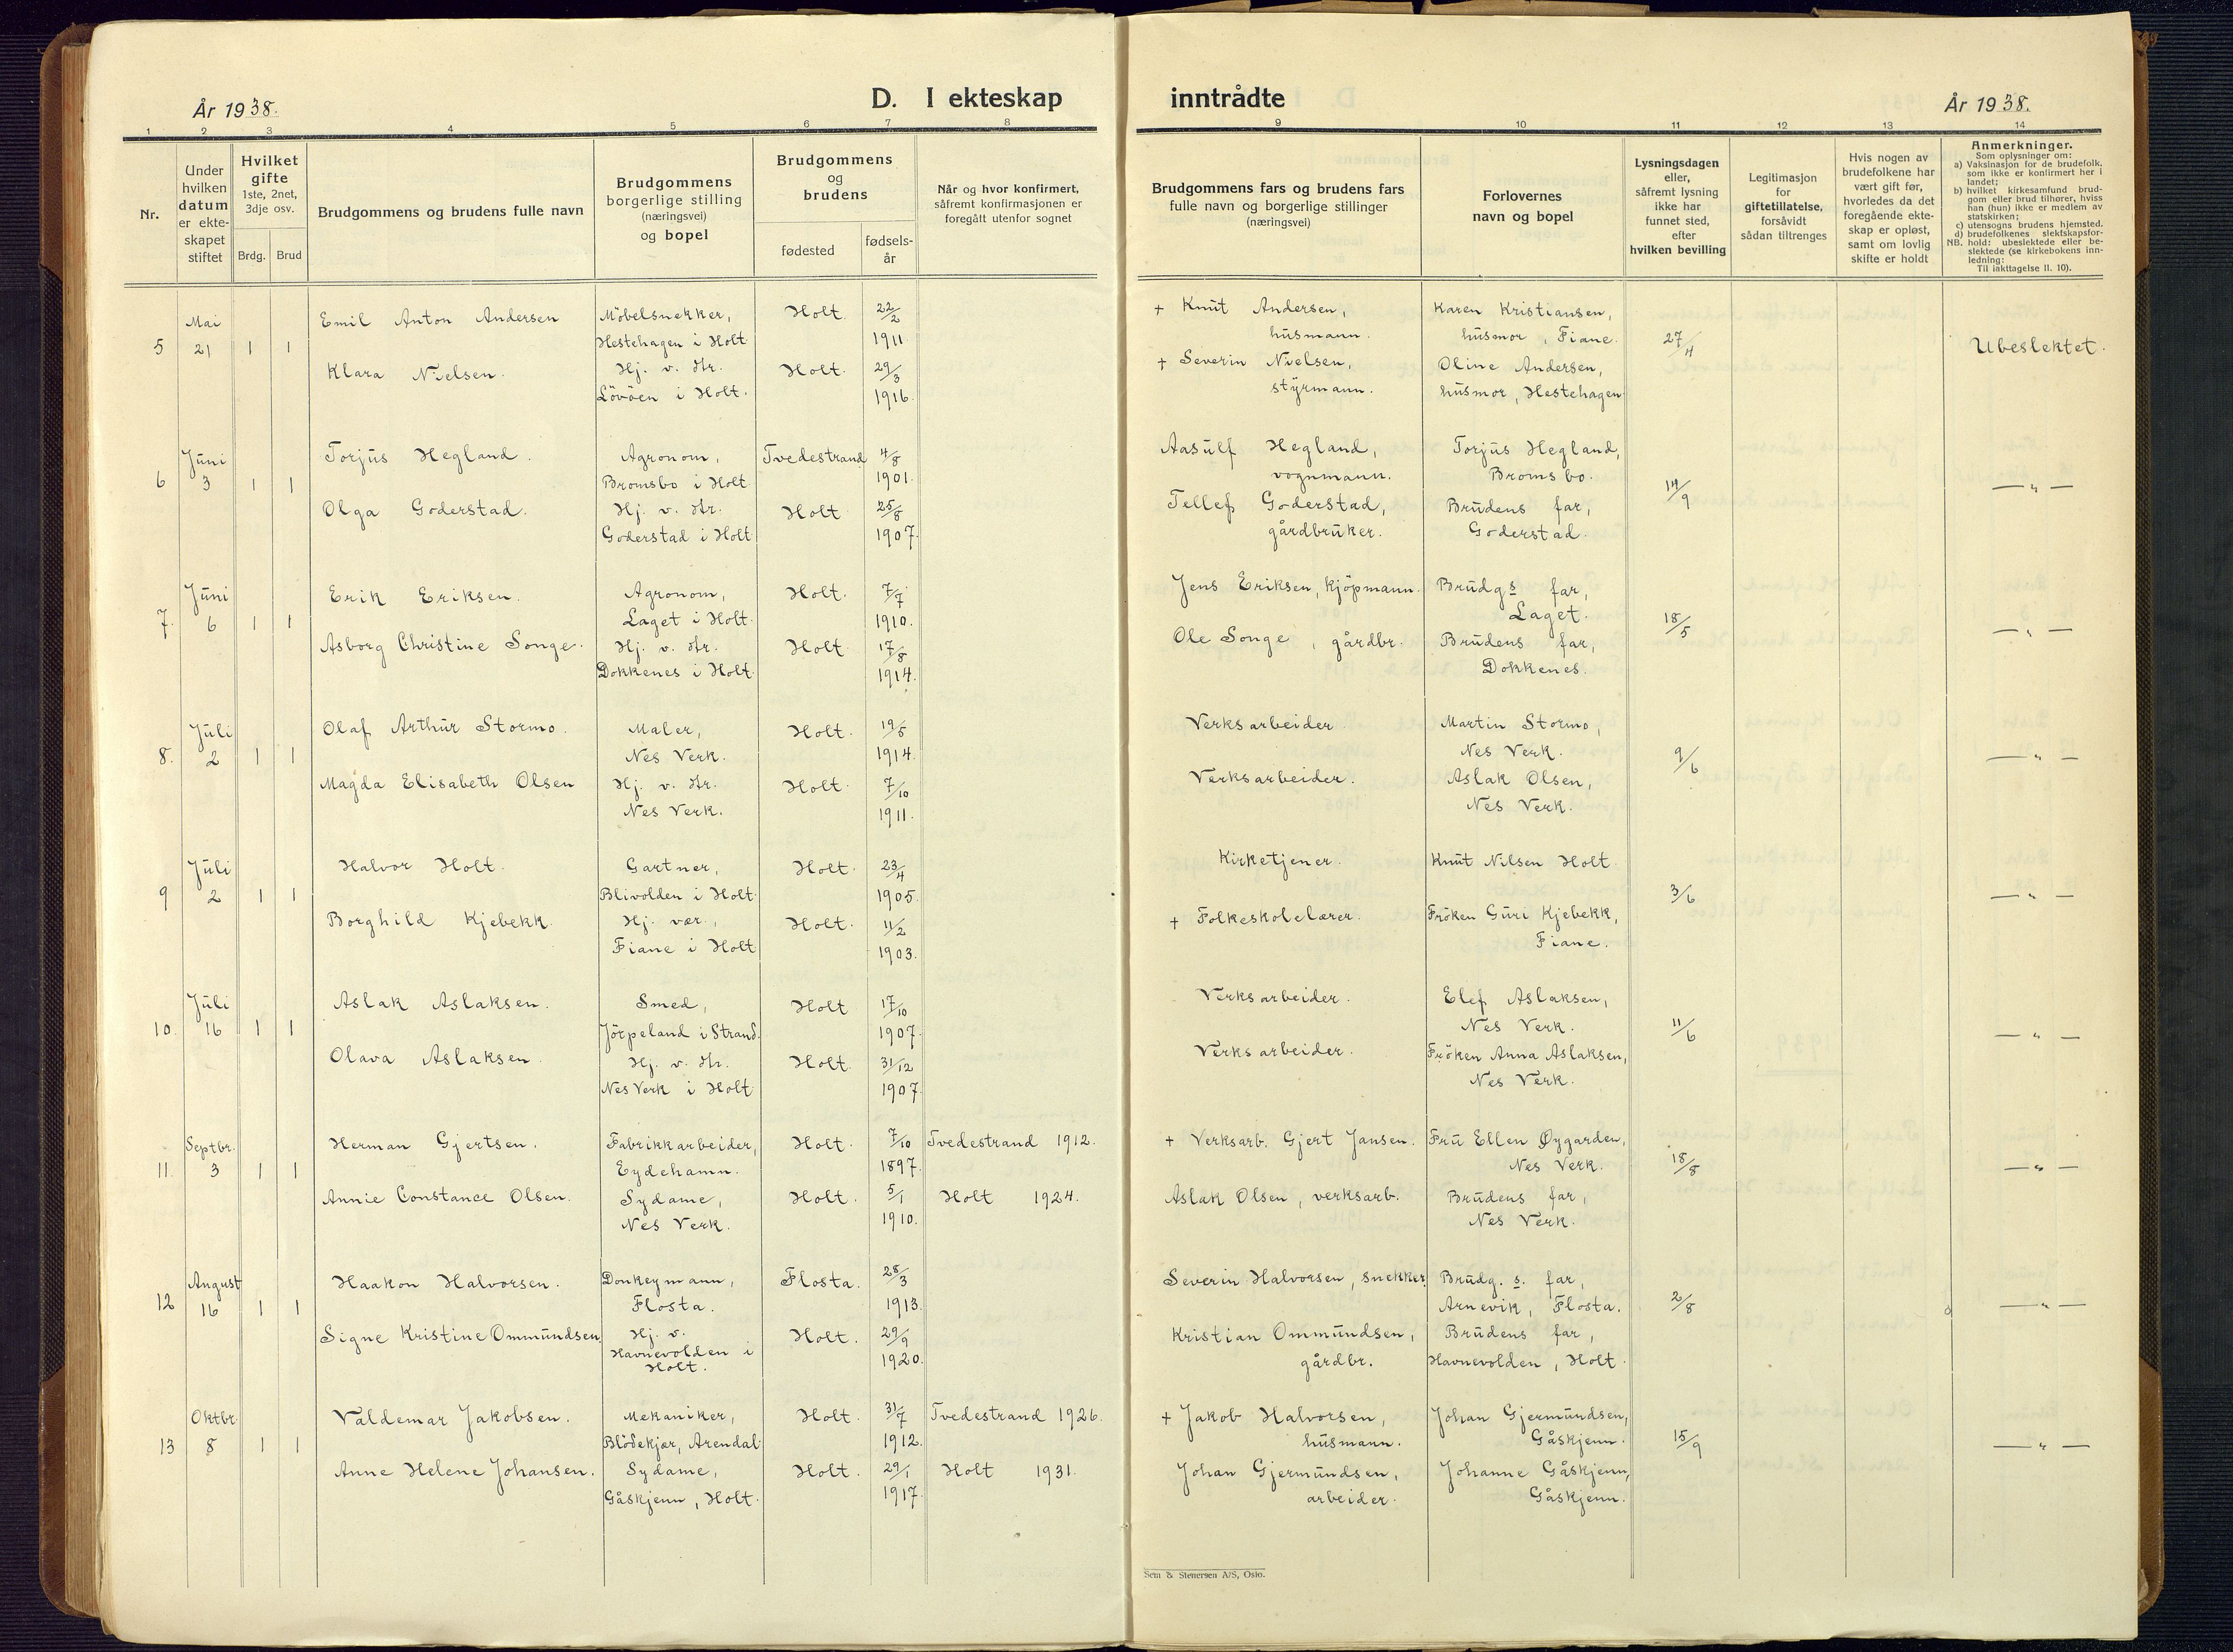 År 1938.
D. I ekteskap
inntrådte
År 1938.
1 2 3 4 5 6 7 8 9 10 11 12 13 14
Nr.
Under hvilken datum er ekte- skapet stiftet
Hvilket gifte
1ste, 2net, 3dje osv.
Brdg. Brud
Brudgommens og brudens fulle navn
Brudgommens borgerlige stilling (næringsvei) og bopel
Brudgommens og brudens
fødested
fødsels- år
Når og hvor konfirmert, såfremt konfirmasjonen er foregått utenfor sognet
Brudgommens fars og brudens fars fulle navn og borgerlige stillinger (næringsvei)
Forlovernes navn og bopel
Lysningsdagen eller, såfremt lysning ikke har funnet sted, efter hvilken bevilling
Legitimasjon for giftetillatelse, forsåvidt sådan tiltrenges
Hvis nogen av brudefolkene har vært gift før, hvorledes da det foregående ekte- skap er opløst, samt om lovlig skifte er holdt
Anmerkninger.
Som oplysninger om:
a) Vaksinasjon for de brudefolk, som ikke er konfirmert her i landet;
b) hvilket kirkesamfund brud- gom eller brud tilhører, hviss han (hun) ikke er medlem av statskirken;
c) utensogns brudens hjemsted.
d) brudefolkenes slektskapsfor-
NB. hold: ubeslektede eller be- slektede (se kirkebokens inn- ledning:
Til iakttagelse II. 10).
Mai Emil Anton Andersen Möbelsnekker, Holt. 22/2 + Knut Andersen, Karen Kristiansen,
5 21 1 1 Hestehagen i Holt 1911. husmann. husmor, Fiane. 27/4 Ubeslektet.
Klara Nielsen. Hj. v. Hr. Holt. 29/3 + Severin Nielsen, Oline Andersen,
Lövöen i Holt. 1916. styrmann. husmor, Hestehagen
Juni Torjus Hegland. Agronom, Tvedestrand 4/8 Aasulf Hegland, Torjus Hegland,
6 3 1 1 Bromsbo i Holt. 1901. vognmann. Bromsbo. 14/9 — " —
Olga Goderstad. Hj. v. Hr. Holt 25/8 Tellef Goderstad, Brudens far,
Goderstad i Holt 1907. gårdbruker. Goderstad.
Juni Erik Eriksen. Agronom, Holt. 7/7 Jens Eriksen, kjöpmann. Brudgs far,
7. 6 1 1 Laget i Holt. 1910. Laget. 18/5 — " —
Asborg Christine Songe. Hj. v. Hr. Holt 17/8 Ole Songe, gårdbr. Brudens far,
Dokkenes i Holt 1914. Dokkenes.
Juli Olaf Arthur Stormo. Maler, Holt. 19/5 Verksarbeider Martin Stormo,
8. 2 1 1 Nes Verk. 1914. Nes Verk. 9/6 — " —
Magda Elisabeth Olsen Hj. v. Hr. Holt. 7/10 Verksarbeider. Aslak Olsen,
Nes Verk. 1911. Nes Verk.
Juli Halvor Holt. Gartner, Holt. 23/4 Kirketjener. Knut Nilsen Holt
9 2 1 1 Blivolden i Holt. 1905. 3/6 — " —
Borghild Kjebekk. Hj. vær., Holt. 11/2 + Folkeskolelærer. Fröken Guri Kjebekk,
Fiane i Holt 1903. Fiane.
Juli Aslak Aslaksen. Smed, Holt 17/10 Verksarbeider. Elef Aslaksen,
10. 16 1 1 Jörpeland i Strand. 1907. Nes Verk. 11/6 — " —
Olava Aslaksen. Hj. v. Hr. Holt. 31/12 Verksarbeider. Fröken Anna Aslaksen,
Nes Verk i Holt 1907. Nes Verk.
Septbr. Herman Gjertsen. Fabrikkarbeider, Holt. 7/10 Tvedestrand 1912. + Verksarb. Gjert Jansen. Fru Ellen Øygarden,
11. 3 1 1 Eydehamn. 1897. Nes Verk. 18/8 — " —
Annie Constance Olsen. Sydame, Holt. 5/1 Holt 1924. Aslak Olsen, verksarb. Brudens far,
Nes Verk. 1910. Nes Verk.
August Haakon Halvorsen. Donkeymann, Flosta. 28/3 Severin Halvorsen, snekker. Brudg. s. far,
12 16 1 1 Flosta. 1913. Arnevik, Flosta. 2/8 — " —
Signe Kristine Ommundsen Hj. v. Holt. 29/9 Kristian Ommundsen, Brudens far,
Havnevolden i Holt. 1920. gårdbr. Havnevolden, Holt.
Oktbr. Valdemar Jakobsen. Mekaniker, Holt. 31/7 Tvedestrand 1926. + Jakob Halvorsen, Johan Gjermundsen,
13 8 1 1 Blödekjær, Arendal. 1912. husmann. Gåskjenn. 15/9 — " —
Anne Helene Johansen. Sydame, Holt. 29/1 Holt 1931. Johan Gjermundsen, Johanne Gåskjenn,
Gåskjenn, Holt. 1917. arbeider. Gåskjenn.
Sem & Stenersen A/S, Oslo.